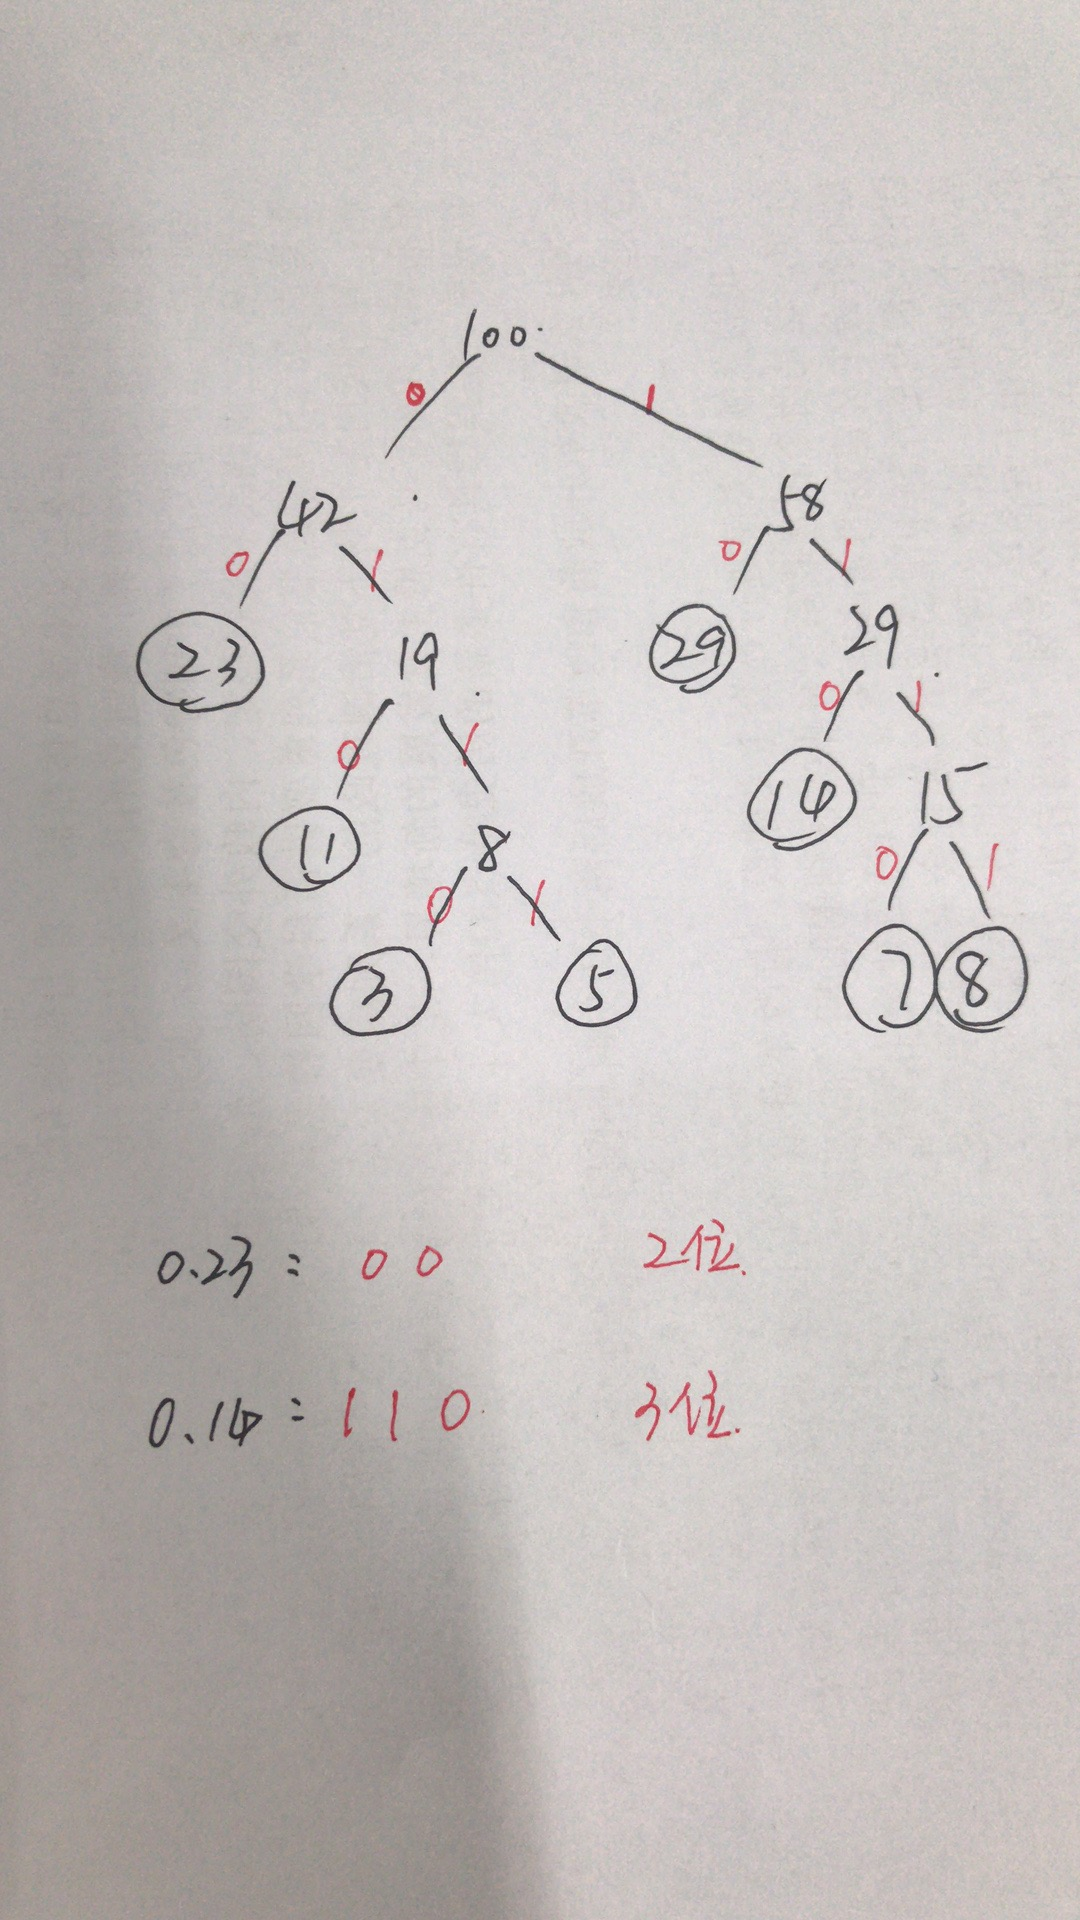 100
0 1
42 58
0 1 0 1
23 19 29 29
0 1 0 1
11 8 14 15
0 1 0 1
3 5 7 8
0.23: 00 2位.
0.14: 110 3位.